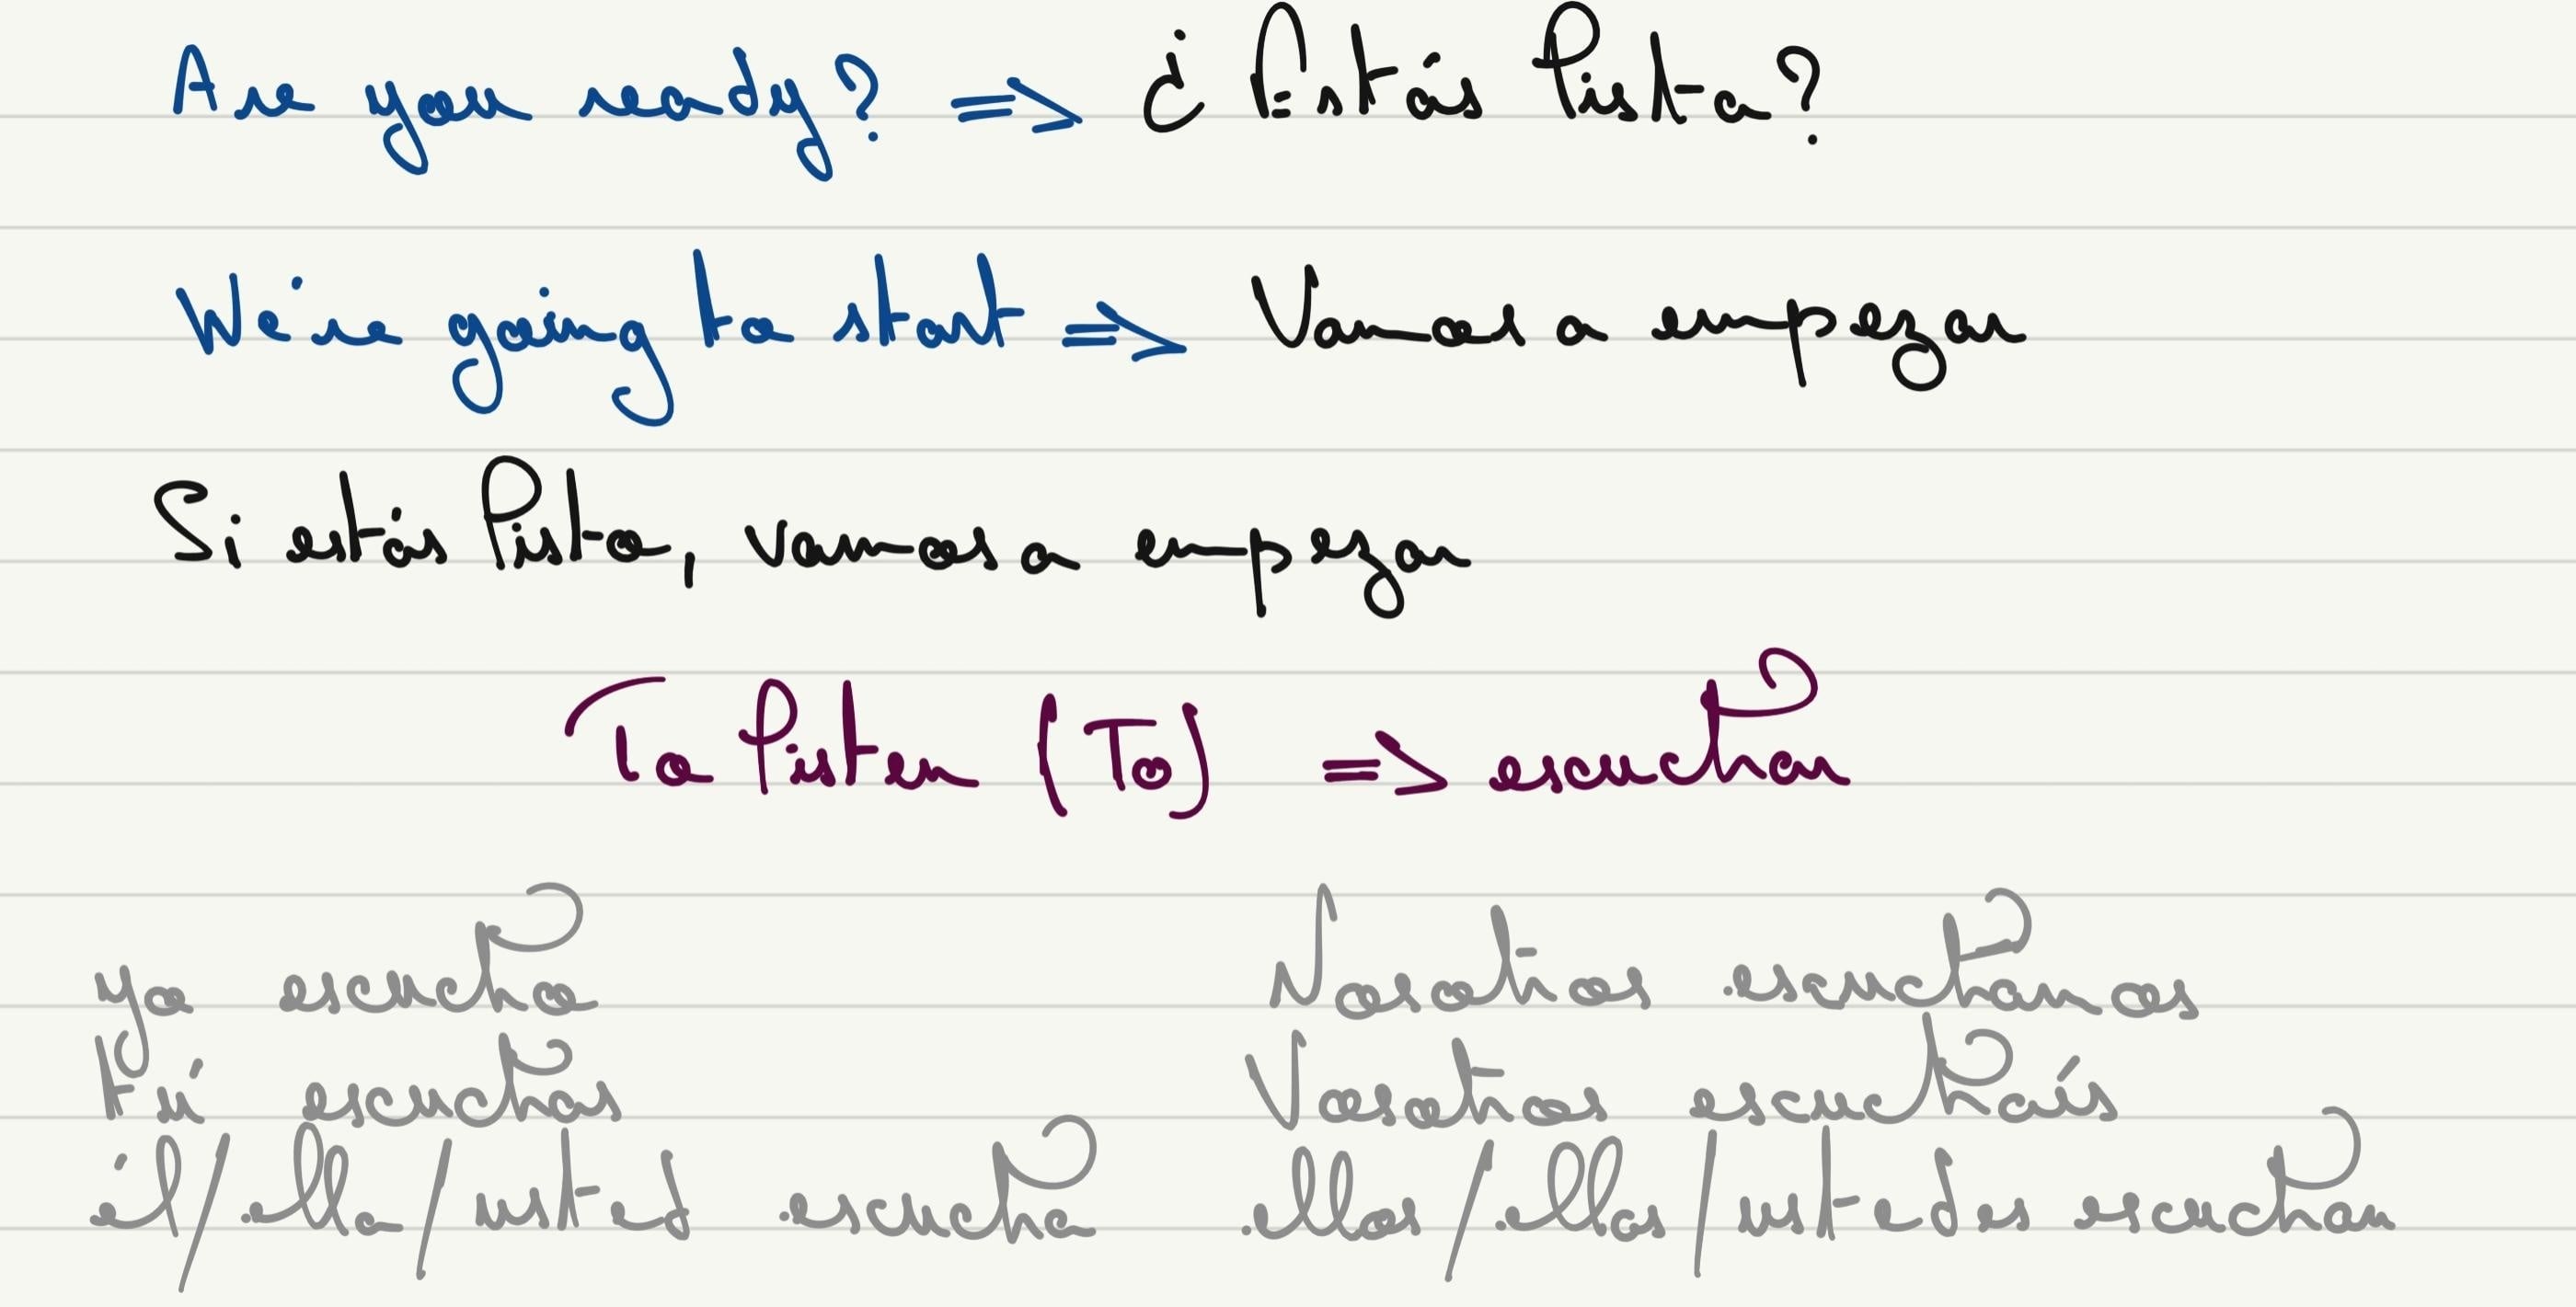 Are you ready? => ¿Estás lista?
We're going to start => Vamos a empezar
Si estás lista, vamos a empezar
To listen (To) => escuchar
yo escucho
tú escuchas
él/ella/usted escucha
Nosotros escuchamos
Vosotros escucháis
ellos/ellas/ustedes escuchan